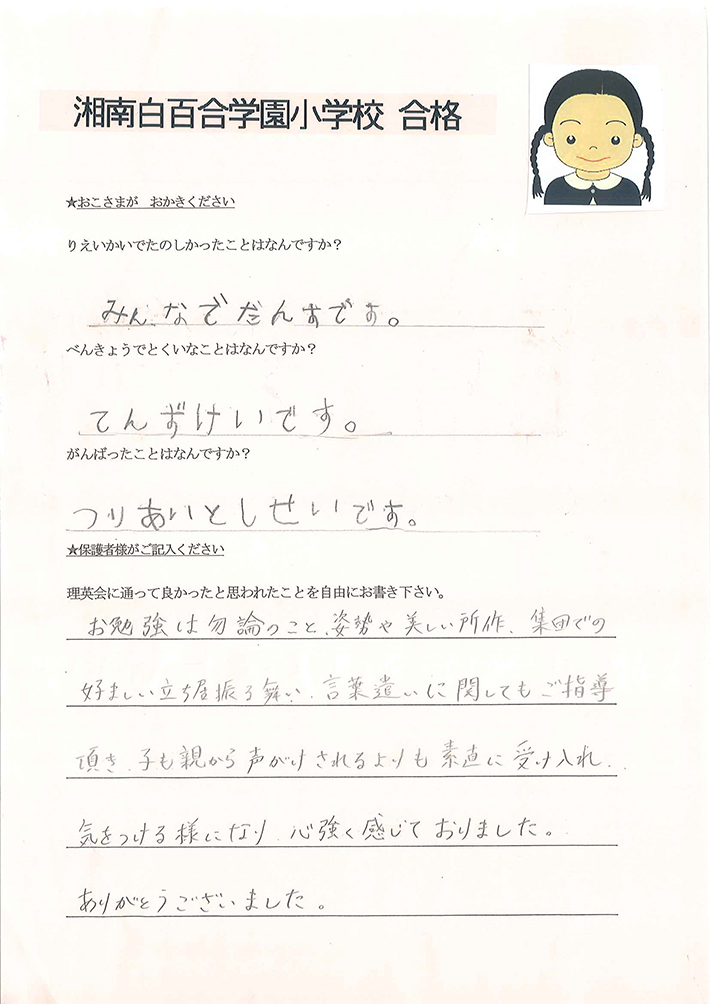 湘南白百合学園小学校 合格
★おこさまが おかきください
りえいかいでたのしかったことはなんですか？
みんなでだんすです。
べんきょうでとくいなことはなんですか？
てんずけいです。
がんばったことはなんですか？
つりあいとしせいです。
★保護者様がご記入ください
理英会に通って良かったと思われたことを自由にお書き下さい。
お勉強は勿論のこと、姿勢や美しい所作、集団での
好ましい立ち居振る舞い、言葉遣いに関してもご指導
頂き、子も親から声がけされるよりも素直に受け入れ、
気をつける様になり、心強く感じておりました。
ありがとうございました。